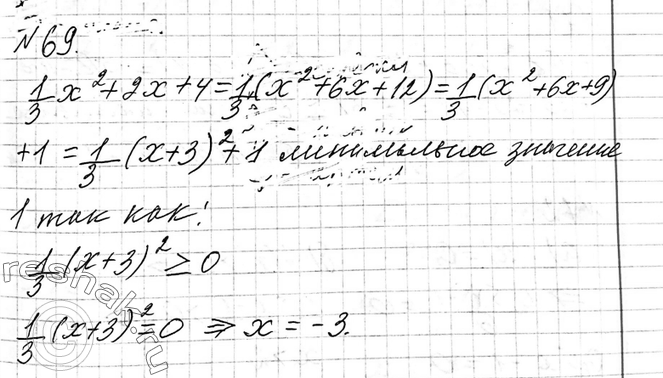 №69.
1/3 x² + 2x + 4 = 1/3 (x² + 6x + 12) = 1/3 (x² + 6x + 9)
+ 1 = 1/3 (x + 3)² + 1 минимальное значение
1 так как!
1/3 (x + 3)² ≥ 0
1/3 (x + 3)² = 0 ⇒ x = -3.
reshak.ru